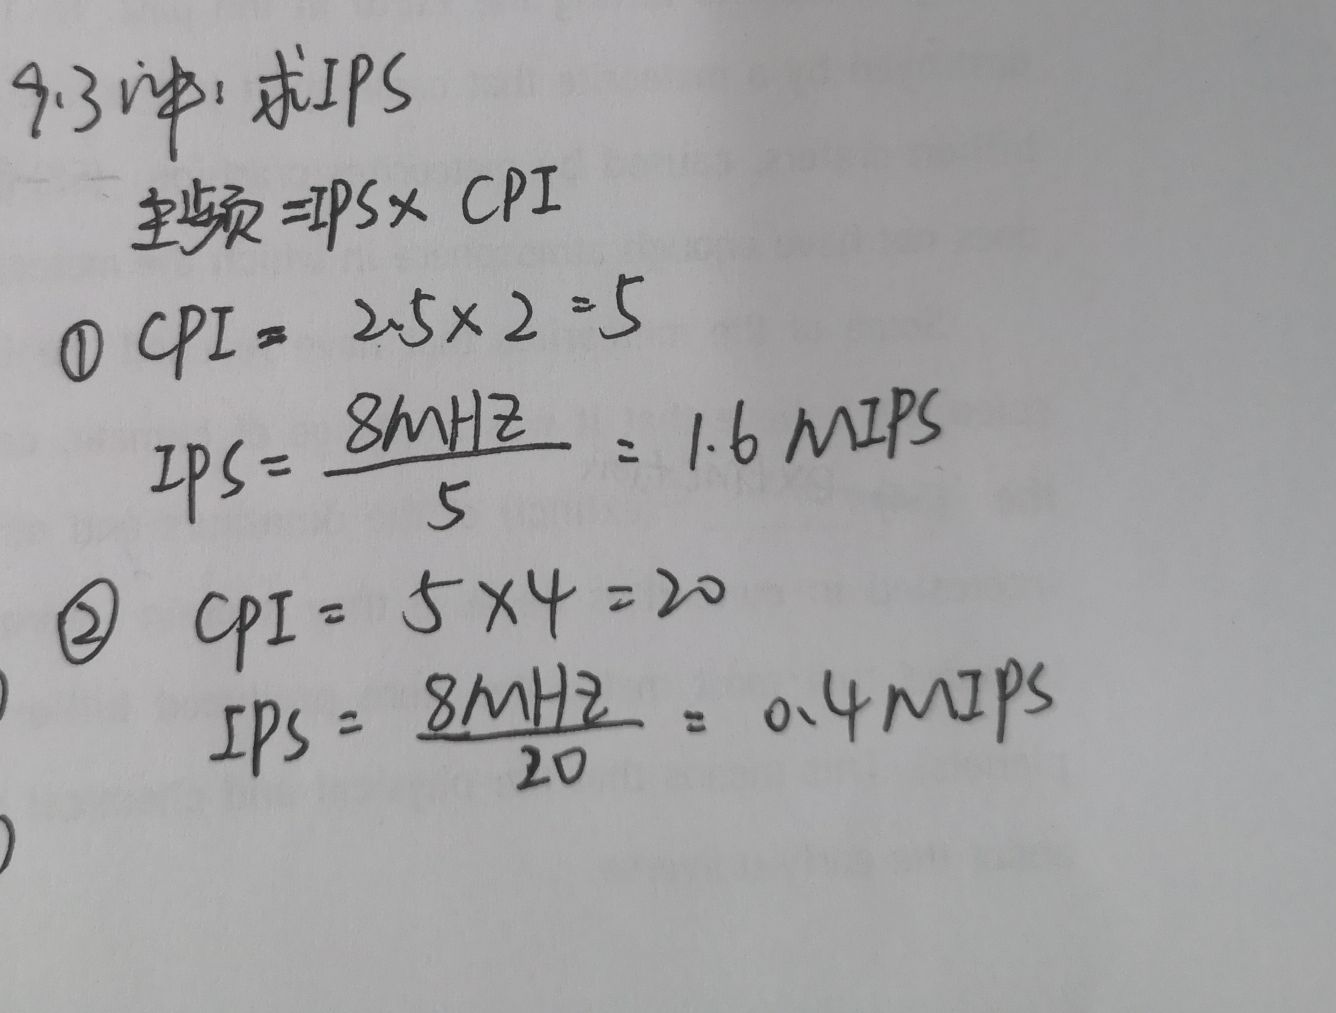 9.3 求IPS
主频=IPS× CPI
① CPI = 2.5×2=5
IPS = 8MHZ / 5 = 1.6 MIPS
② CPI = 5×4=20
IPS = 8MHZ / 20 = 0.4MIPS